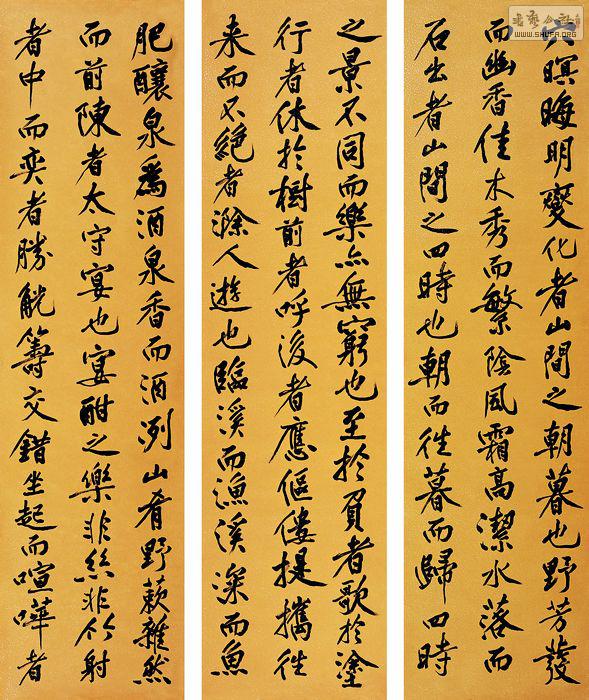 书艺公社
WWW.SHUFA.ORG
穴暝晦明變化者山間之朝暮也野芳發
而幽香佳木秀而繁陰風霜高潔水落而
石出者山間之四時也朝而往暮而歸四時
之景不同而樂亦無窮也至於負者歌於塗
行者休於樹前者呼後者應傴僂提攜往
来而不絕者滁人遊也臨溪而漁溪深而魚
肥釀泉為酒泉香而酒洌山肴野蔌雜然
而前陳者太守宴也宴酣之樂非絲非竹射
者中而奕者勝觥籌交錯坐起而喧嘩者